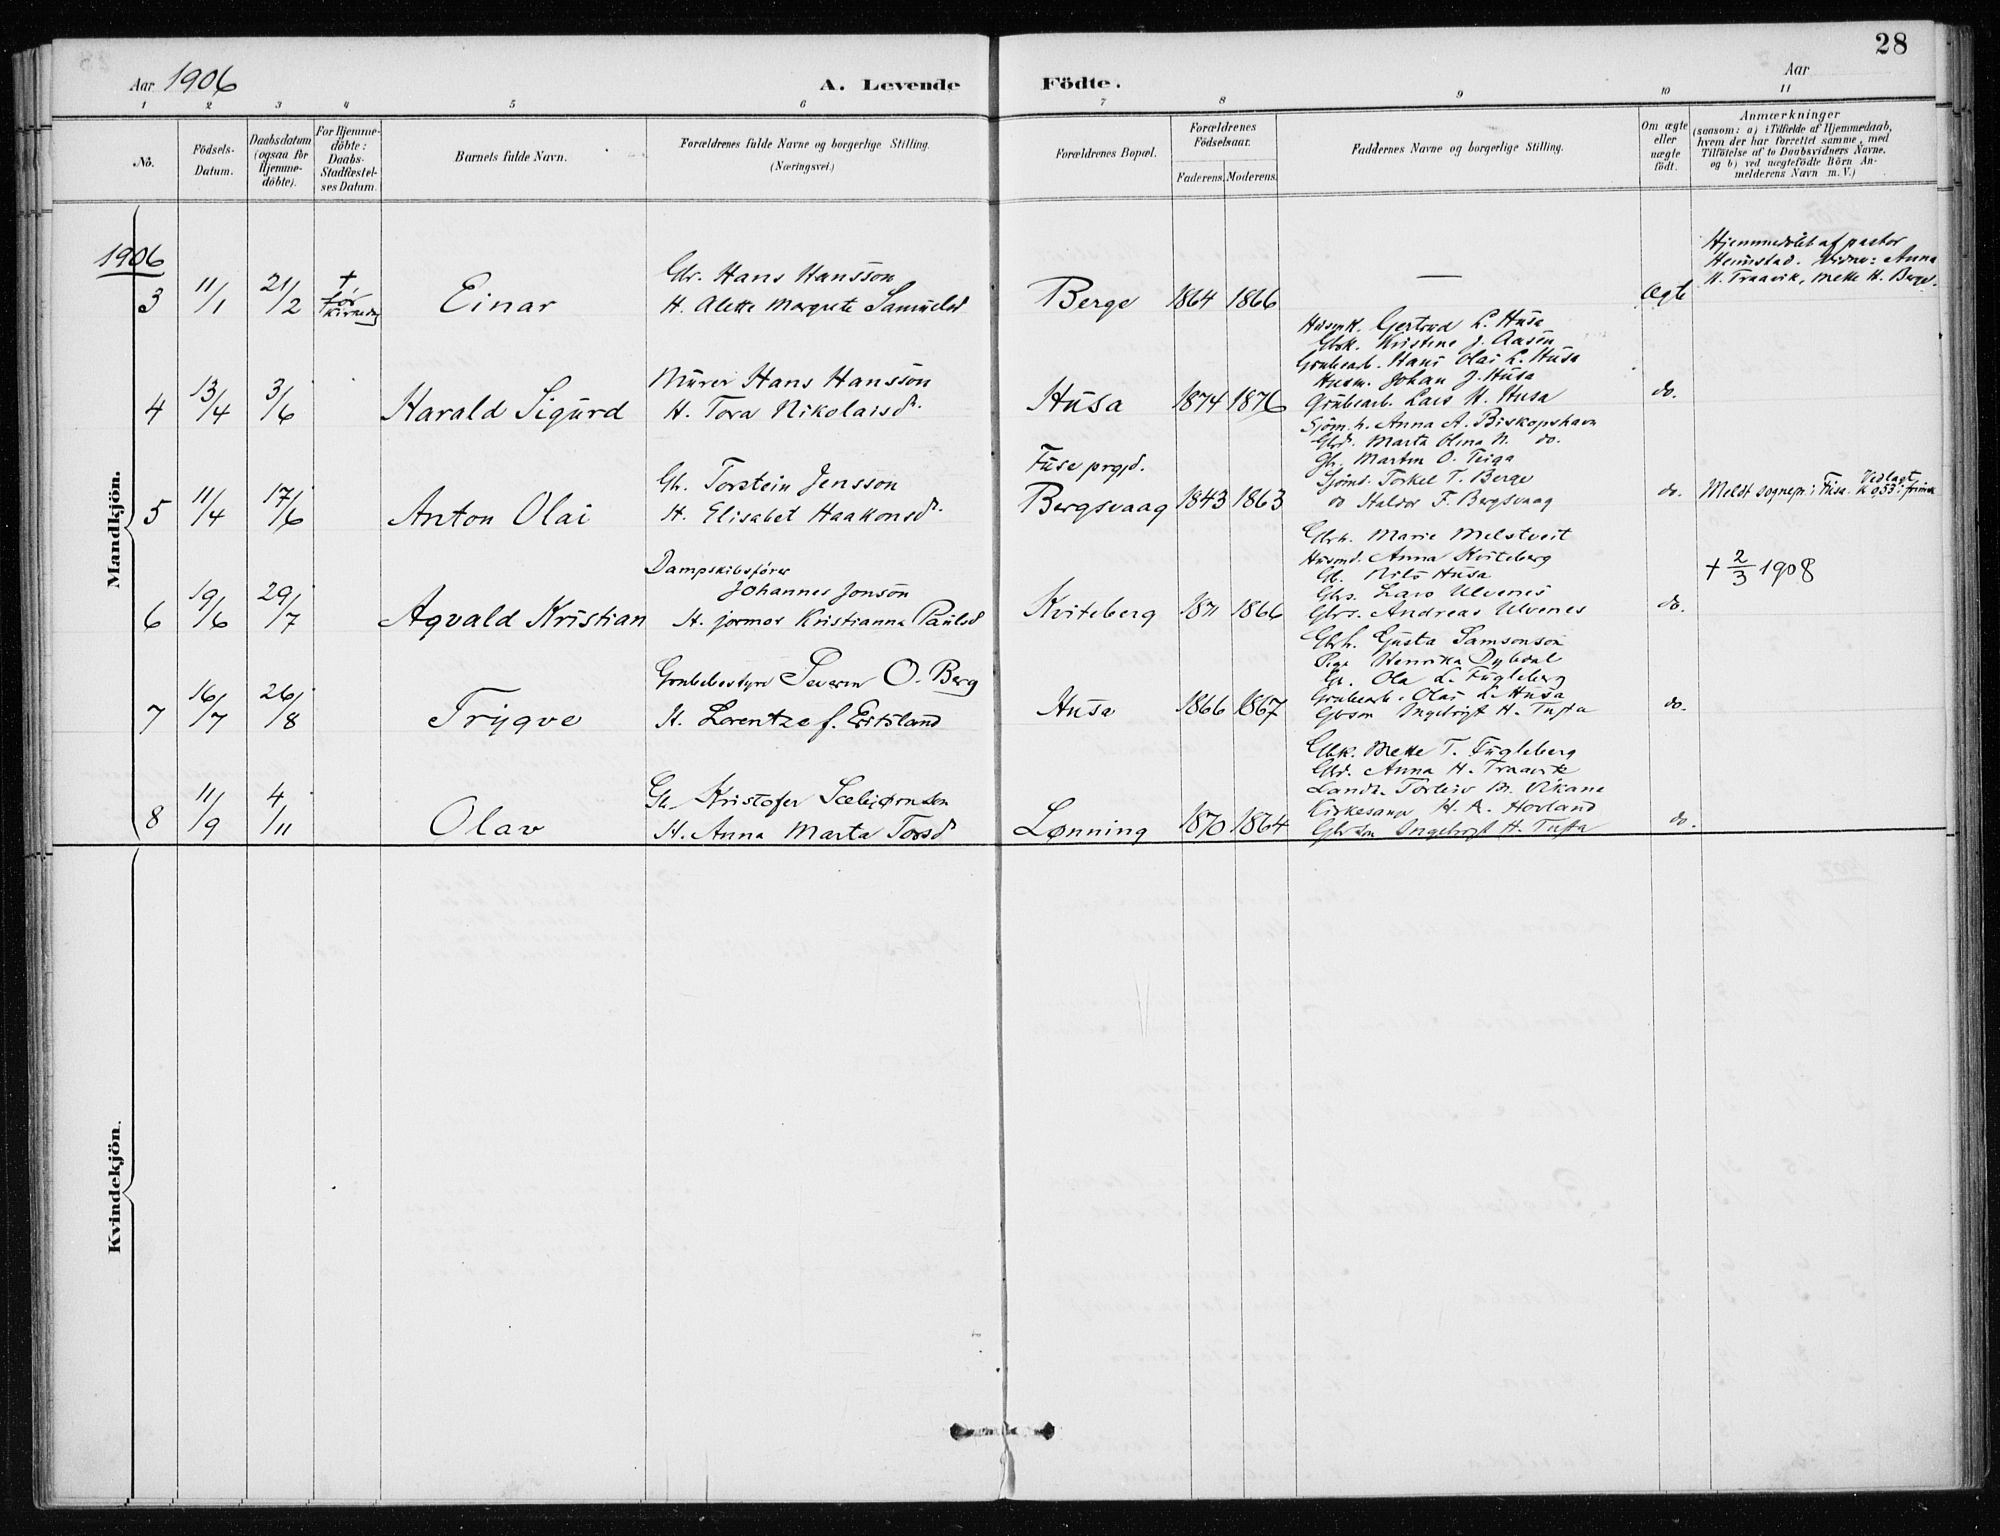 28
Aar 1906
A. Levende
Födte.
Aar
1 2 3 4 5 6 7 8 9 10 11
No.
Födsels-Datum.
Daabsdatum (ogsaa for Hjemme-döbte).
For Hjemme-döbte: Daabs-Stadfæstel-ses Datum.
Barnets fulde Navn.
Forældrenes fulde Navne og borgerlige Stilling.
(Næringsvei.)
Forældrenes Bopæl.
Forældrenes Födselsaar.
Faderens. Moderens.
Faddernes Navne og borgerlige Stilling.
Om ægte eller uægte födt.
Anmærkninger
(saasom: a) i Tilfælde af Hjemmedaab, hvem der har forrettet samme, med Tilföielse af to Daabsvidners Navne, og b) ved uægtefödte Börn An-melderens Navn m. V.)
Mandkjön.
1906
3 11/1 21/2 † før Einar
Gbr. Hans Hansson
H. Alette Margrete Samuelsd
Berge 1864 1866 — Ægte
Hjemmedøbt af pastor
Heimstad. Vidner: Anna
H. Traavik, Mette H. Berge.
4 13/4 3/6 Harald Sigurd
Murer Hans Hansson
H. Tora Nikolaisdr.
Husa 1874 1876
Husmk. Gertrud L. Husa
Gbk. Kristine J. Aasen
Grubearb. Hans Olai L. Husa
Husm. Johan J. Husa
Grubearb. Lars H. Husa
do.
5 11/4 17/6 Anton Olai
Gbr. Torstein Jensson
H. Elisabet Haakonsdr.
Fuse prgjd.
Bergsvaag 1843 1863
Sjøm. h. Anna A. Biskopshavn
Gbd. Marta Olina N. do.
Gbr. Martin O. Teiga
Sjømd. Torkel T. Berge
do Haldor F. Bergsvaag
do. Meldt sognepr. i Fusa. Vedlagt
6 19/6 29/7 Agvald Kristian
Dampskibsfører
Johannes Jonson
H. Jormor Kristianna Paulsd
Kviteberg 1871 1866
Gbrh. Marie Melstveit
Husmd. Anna Kviteberg
Gb. Nils Husa
Gbrs. Lars Ulvenes
Gbrs. Andreas Ulvenes
do.
† 2/3 1908
7 16/7 26/8 Trygve
Grubebestyrer Severin O. Berg
H. Lorentze f.
Husa 1866 1867
Gbrh. Gusta Samsonson
Pige Henrika Dybdal
Gb. Ola L. Fugleberg
Grubearb. Olai L. Husa
Gbrson Ingebrigt H. Tufta
do.
8 11/9 4/11 Olav
Gb. Kristofer Sæbjørnson
H. Anna Marta Torsd
Lønning 1870 1864
Gbk. Mette T. Fugleberg
Gbd. Anna H. Traavik
Landh. Torleiv M. Vikane
Kirkesanger H. A. Hovland
Gbrson Ingebrigt H. Tufta
do.
Kvindekjön.